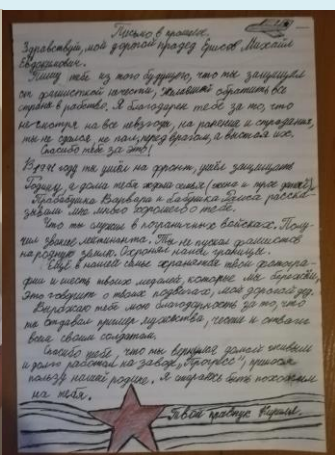 Письмо в прошлое.
Здравствуй, мой дорогой прадед Ершов Михаил
Евдокимович.
Пишу тебе из того будущего, что ты защищал
от фашистской нечисти, желавшей обратить все
страны в рабство. Я благодарен тебе за то, что
не смотря на все невзгоды, на ранение и страдания,
ты не сдался, не пал, перед врагом, а выстоял их.
Спасибо тебе за это!
В 1941 году ты ушёл на фронт, ушёл защищать
Родину, а дома тебя ждала семья (жена и трое детей).
Прабабушка Варвара и бабушка Раиса расска-
зывали мне много хорошего о тебе.
Что ты служил в пограничных войсках. Полу-
чил звание лейтенанта. Ты не пускал фашистов
на родную землю. Охранял нашу границу.
Ещё в нашей семье хранятся твои фотогра-
фии и шесть твоих медалей, которые мы бережём,
это говорит о твоих подвигах, мой дорогой дед.
Выражаю тебе мою благодарность за то, что
ты отдавал пример мужества, чести и отваги
всем своим солдатам.
Спасибо тебе, что ты вернулся домой живым
и долго работал на заводе "Прогресс", принося
пользу нашей родине. Я стараюсь быть похожим
на тебя.
Твой правнук Кирилл.